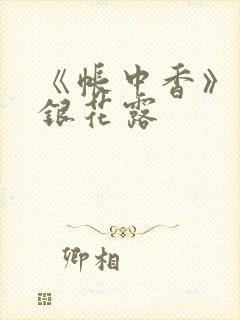 《帐中香》
银花露
卿相